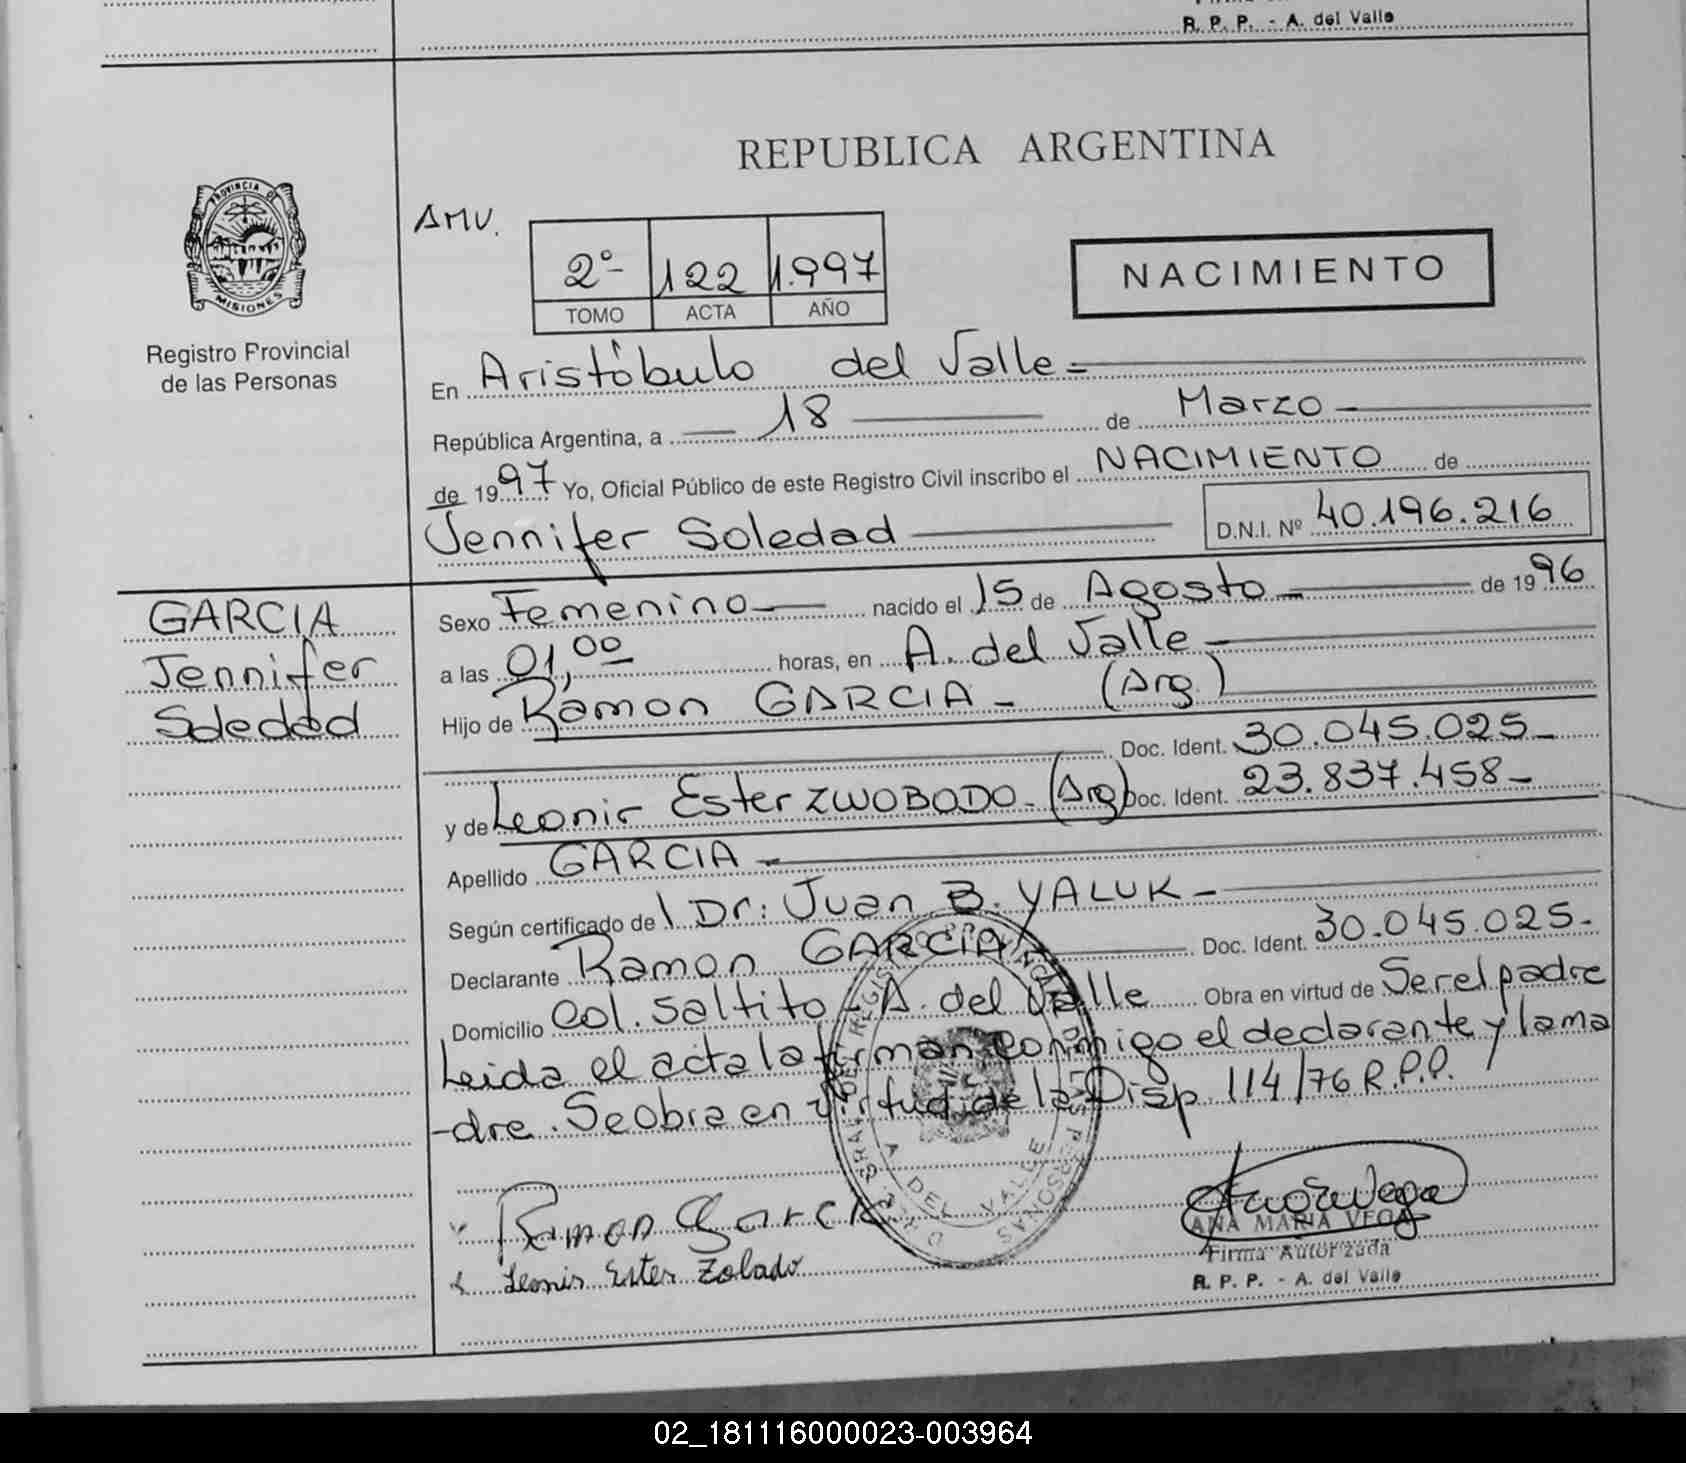 R. P. P. - A. del Valle
REPUBLICA ARGENTINA
PROVINCIA DE
MISIONES
Registro Provincial
de las Personas
AMV.
2º- 122 1.997
TOMO ACTA AÑO
NACIMIENTO
En Aristóbulo del Valle=
República Argentina, a 18 de Marzo
de 1997 Yo, Oficial Público de este Registro Civil inscribo el NACIMIENTO de
Jennifer Soledad D.N.I. Nº 40.196.216
GARCIA
Jennifer
Soledad
Sexo Femenino nacido el 15 de Agosto de 1996
a las 01,00 horas, en A. del Valle
Hijo de Ramon GARCIA - (Arg.)
Doc. Ident. 30.045.025-
y de Leonir Ester ZWOBODO - (Arg) Doc. Ident. 23.837.458-
Apellido GARCIA
Según certificado del Dr: Juan B. YALUK -
Declarante Ramon GARCIA Doc. Ident. 30.045.025-
Domicilio Col. Saltito - A. del Valle Obra en virtud de Ser el padre
Leida el acta la firman conmigo el declarante y la ma
-dre. Se obra en virtud de la Disp. 114/76 R.P.P.
A. DEL VALLE
Ramon Garcia
Leonir Ester Zolado
ANA MARIA VEGA
Firma Autorizada
R. P. P. - A. del Valle
02_181116000023-003964